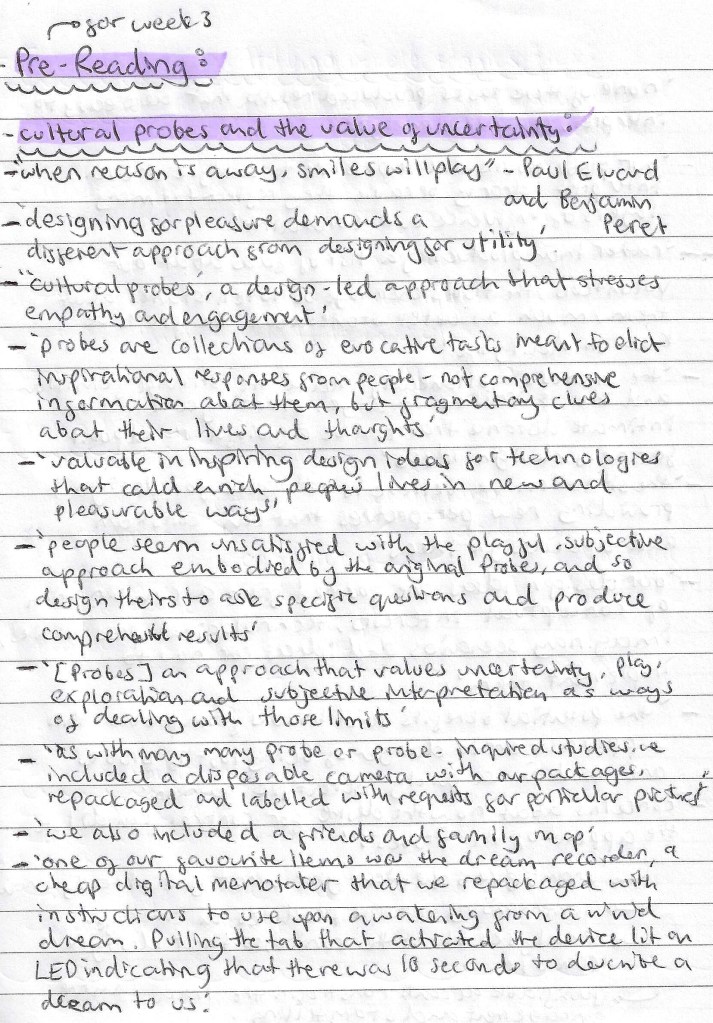 for week 3
- Pre-Reading:
- cultural probes and the value of uncertainty:
- "when reason is away, smiles will play" - Paul Elward
and Benjamin
Peret
- designing for pleasure demands a
different approach from designing for utility'
- "cultural probes, a design-led approach that stresses
empathy and engagement'
- 'probes are collections of evocative tasks meant to elict
inspirational responses from people - not comprehensive
information about them, but fragmentary clues
about their lives and thoughts'
- 'valuable in inspiring design ideas for technologies
that could enrich people's lives in new and
pleasurable ways'
- 'people seem unsatisfied with the playful, subjective
approach embodied by the original Probes, and so
design theirs to ask specific questions and produce
comprehensible results'
- '[Probes] an approach that values uncertainty, play,
exploration and subjective interpretation as ways
of dealing with those limits'
- 'as with many many probe or probe-inquired studies, we
included a disposable camera with our packages,
repackaged and labelled with requests for particular pictures"
- 'we also included a friends and family map'
- 'one of our favourite items was the dream recorder, a
cheap digital memotaker that we repackaged with
instructions to use upon awakening from a vivid
dream. Pulling the tab that activated the device lit an
LED indicating that there was 10 seconds to describe a
dream to us'